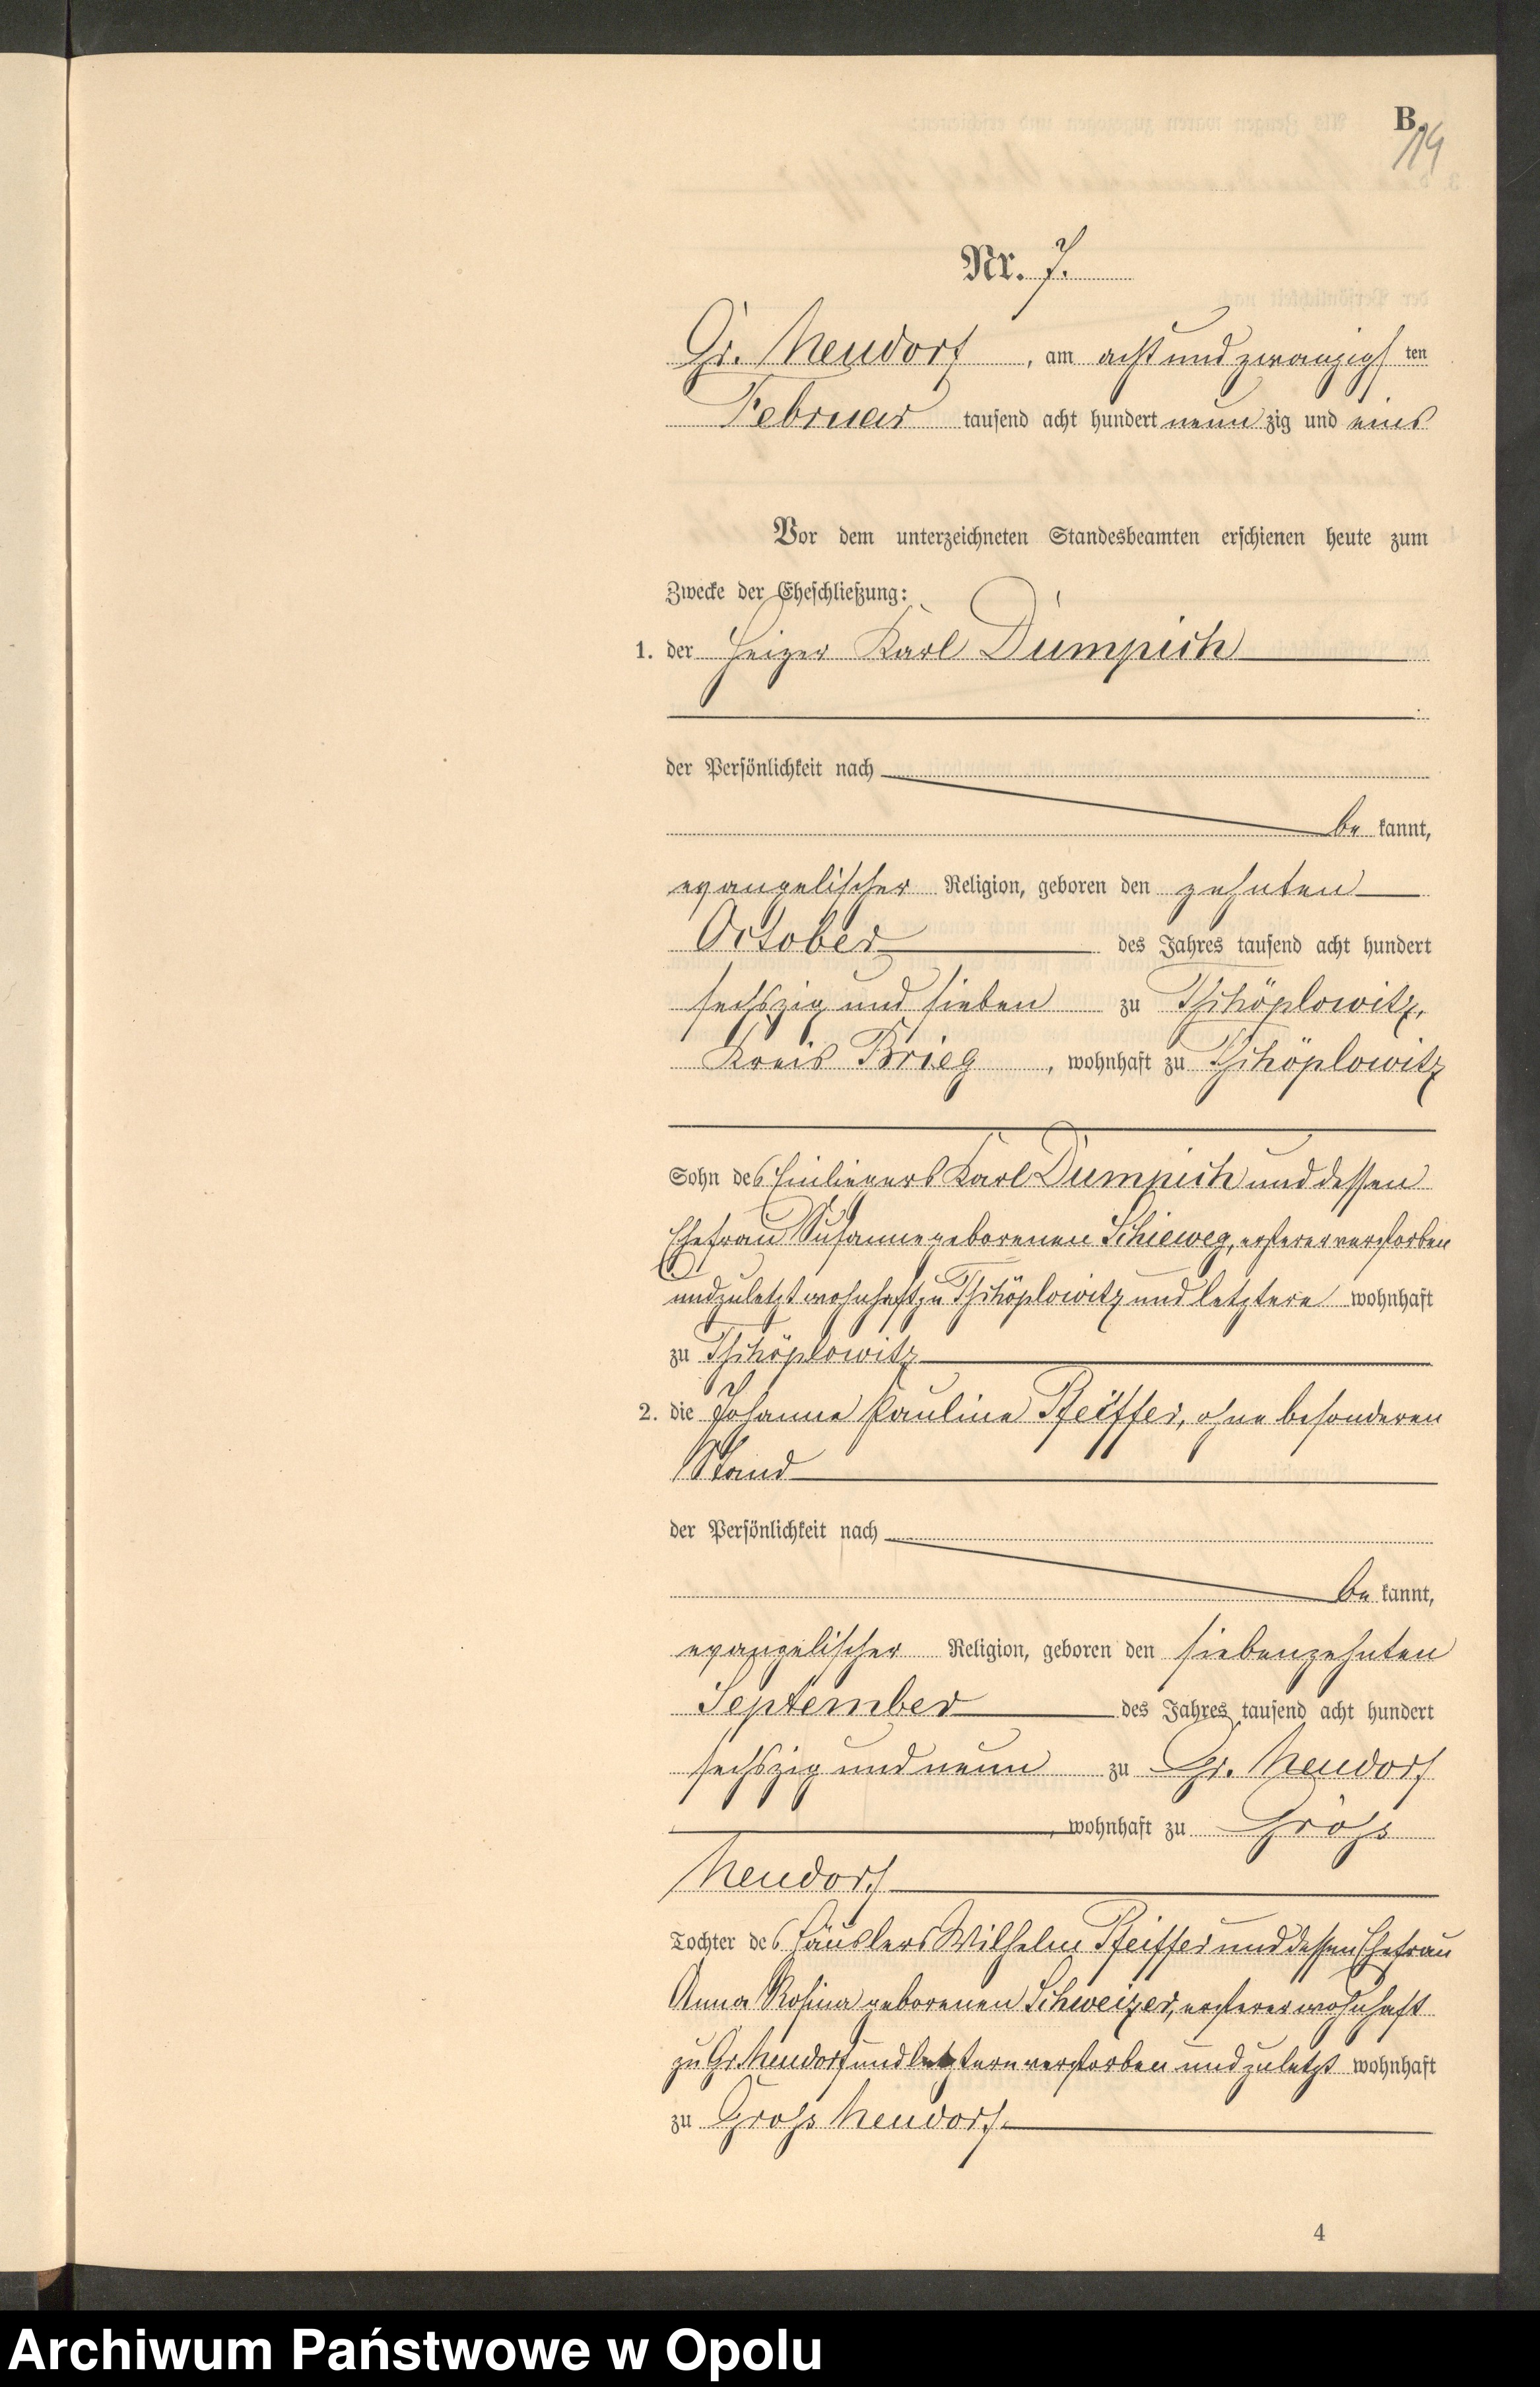 B.
119
Nr. 7.
Gr. Neudorf, am acht und zwanzigsten
Februar tausend acht hundert neunzig und eins
Vor dem unterzeichneten Standesbeamten erschienen heute zum
Zwecke der Eheschließung:
1. der Heizer Karl Dumpich
der Persönlichkeit nach
bekannt,
evangelischer Religion, geboren den zehnten
October des Jahres tausend acht hundert
sechszig und sieben zu Tschöplowitz,
Kreis Brieg, wohnhaft zu Tschöplowitz
Sohn des Einliegers Karl Dumpich und dessen
Ehefrau Susanne geborenen Schieweg, ersterer verstorben
und zuletzt wohnhaft zu Tschöplowitz und letztere wohnhaft
zu Tschöplowitz
2. die Johanne Pauline Pfeiffer, ohne besonderen
Stand
der Persönlichkeit nach
bekannt,
evangelischer Religion, geboren den siebenzehnten
September des Jahres tausend acht hundert
sechszig und neun zu Gr. Neudorf
, wohnhaft zu Groß
Neudorf
Tochter des Häuslers Wilhelm Pfeiffer und dessen Ehefrau
Anna Rosina geborenen Schweizer, ersterer wohnhaft
zu Gr. Neudorf und letztere verstorben und zuletzt wohnhaft
zu Groß Neudorf.
4
Archiwum Państwowe w Opolu